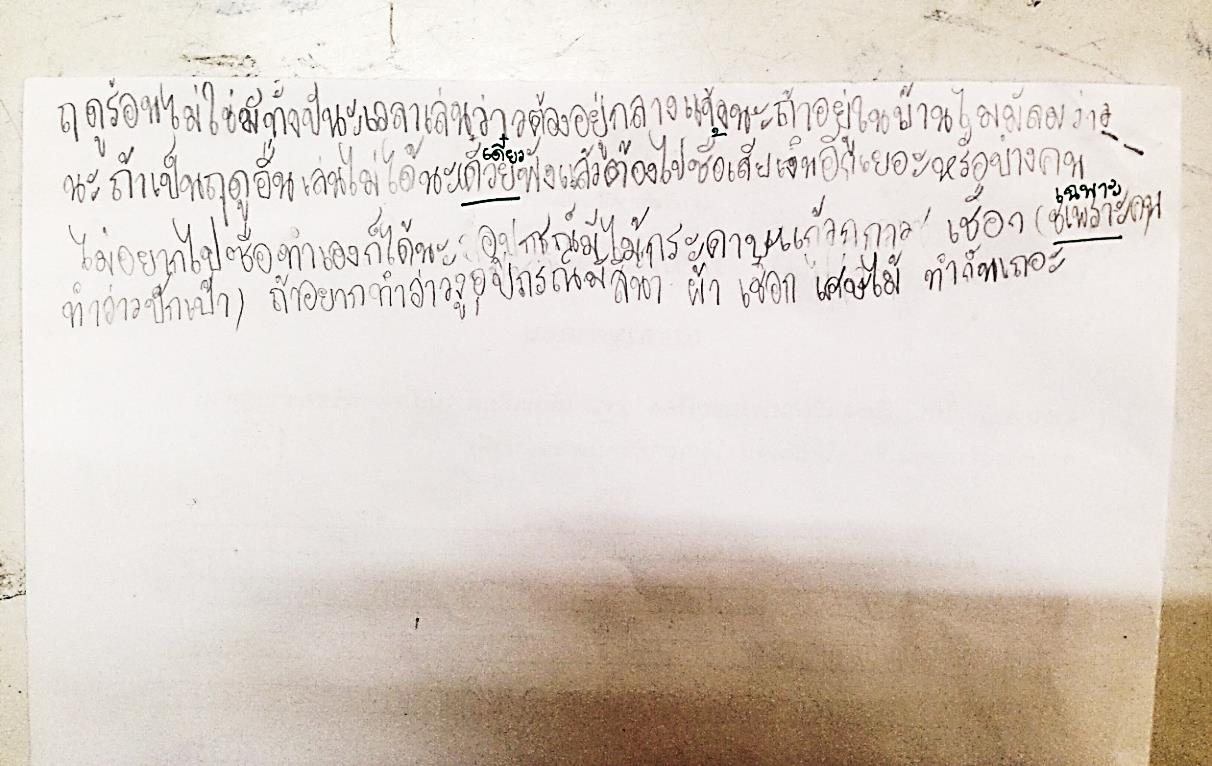 ฤดูร้อนไม่ใช่มีทั้งปีนะเวลาเล่นว่าวต้องอยู่กลางแจ้งนะถ้าอยู่ในบ้านไม่มีลมว่าว
เดี๋ยว
นะถ้าเป็นฤดูอื่นเล่นไม่ได้นะเดี้วยพังแล้วต้องไปซื้อเสียเงินอีกเยอะหรือบางคน
เฉพาะ
ไม่อยากไปซื้อทำเองก็ได้นะ อุปกรณ์มีไม้กระดาษแก้วกาว เชือก (ชเพราะคน
ทำว่าวปักเป้า) ถ้าอยากทำว่าวงูอุปกรณ์มี ผ้า เชือก เศษไม้ ทำกันเถอะ